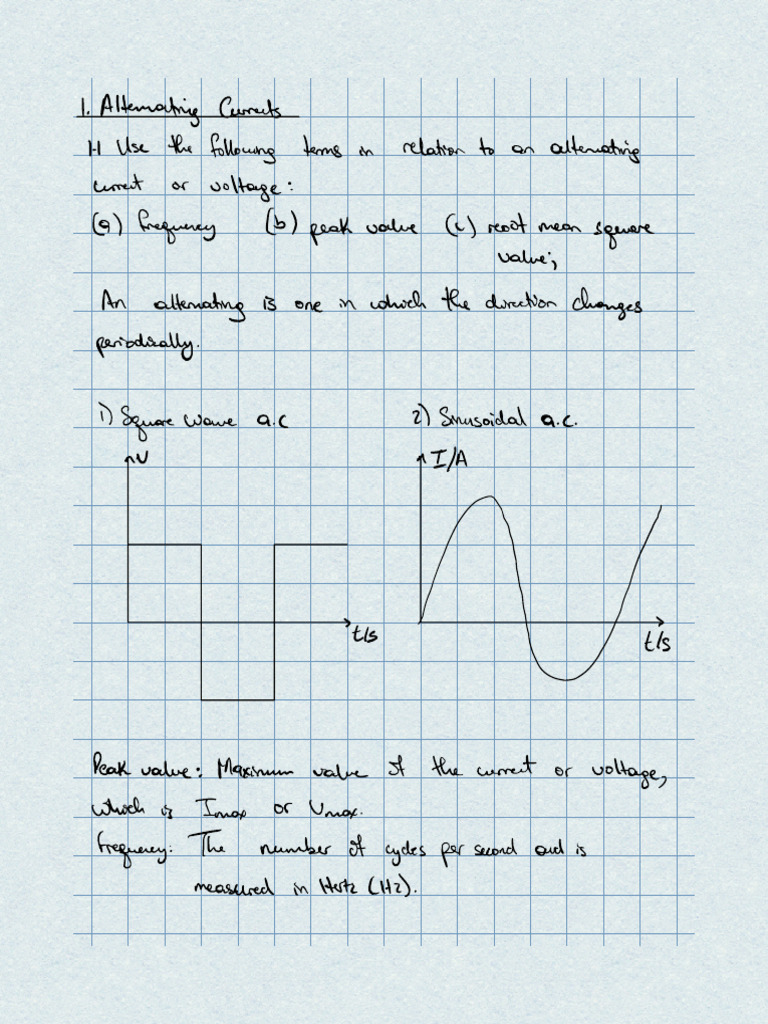 1. Alternating Currents
1.1 Use the following terms in relation to an alternating
current or voltage:
(a) frequency (b) peak value (c) root mean square
value;
An alternating is one in which the direction changes
periodically.
1) Square wave a.c 2) Sinusoidal a.c.
V I/A
t/s t/s
Peak value: Maximum value of the current or voltage,
which is Imax or Vmax.
Frequency: The number of cycles per second and is
measured in Hertz (Hz).